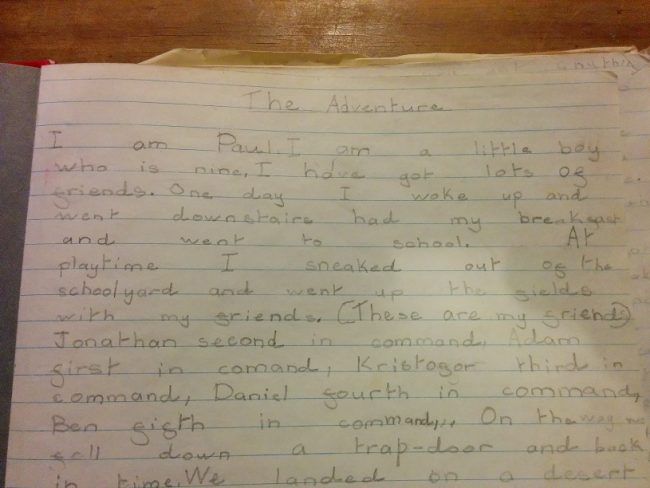 The Adventure
I am Paul. I am a little boy
who is nine. I have got lots of
friends. One day I woke up and
went downstairs had my breakfast
and went to school. At
playtime I sneaked out of the
schoolyard and went up the fields
with my friends. (These are my friends)
Jonathan second in command, Adam
first in comand, Kristofor third in
command, Daniel fourth in command,
Ben fifth in command,,, On the way we
fell down a trap-door and back
in time. We landed on a desert